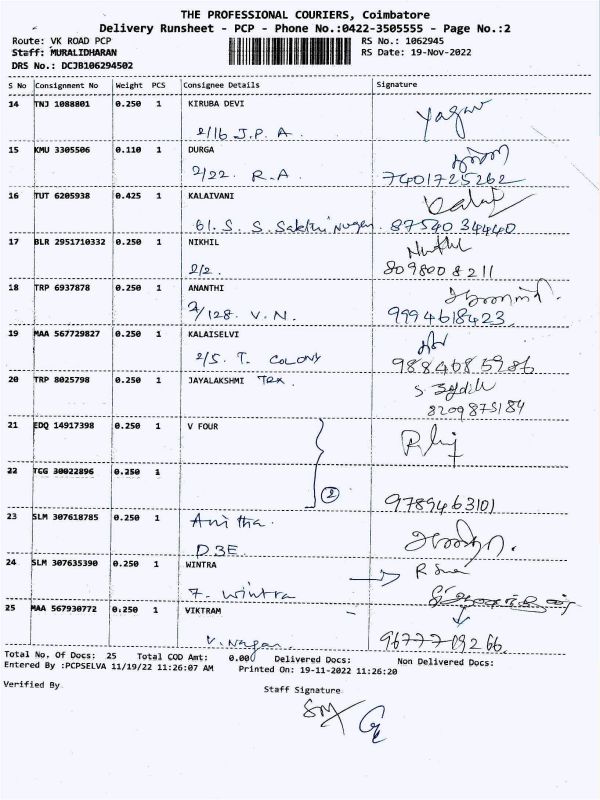 THE PROFESSIONAL COURIERS, Coimbatore
Delivery Runsheet - PCP - Phone No.:0422-3505555 - Page No.:2
Route: VK ROAD PCP RS No.: 1062945
Staff: MURALIDHARAN RS Date: 19-Nov-2022
DRS No.: DCJB106294502
S No Consignment No Weight PCS Consignee Details Signature
14 TNJ 1088801 0.250 1 KIRUBA DEVI
2/16 J.P.A.
15 KMU 3305506 0.110 1 DURGA
2/22. R.A. 7401725262
16 TUT 6205938 0.425 1 KALAIVANI
61. S. S. Sakthi Nagar. 87540 34440
17 BLR 2951710332 0.250 1 NIKHIL Nikhil
2/2. 8098008211
18 TRP 6937878 0.250 1 ANANTHI
2/128. V.N. 9994618423
19 MAA 567729827 0.250 1 KALAISELVI
2/5. T. COLONY 9884685986
20 TRP 8025798 0.250 1 JAYALAKSHMI Tex
8209873184
21 EDQ 14917398 0.250 1 V FOUR
22 TCG 30022896 0.250 1
2 9789463101
23 SLM 307618785 0.250 1 Anitha.
D3E
24 SLM 307635390 0.250 1 WINTRA
7. Wintra
25 MAA 567930772 0.250 1 VIKTRAM
V. Nagar. 9677709266.
Total No. Of Docs: 25 Total COD Amt: 0.00 Delivered Docs: Non Delivered Docs:
Entered By :PCPSELVA 11/19/22 11:26:07 AM Printed On: 19-11-2022 11:26:20
Verified By
Staff Signature